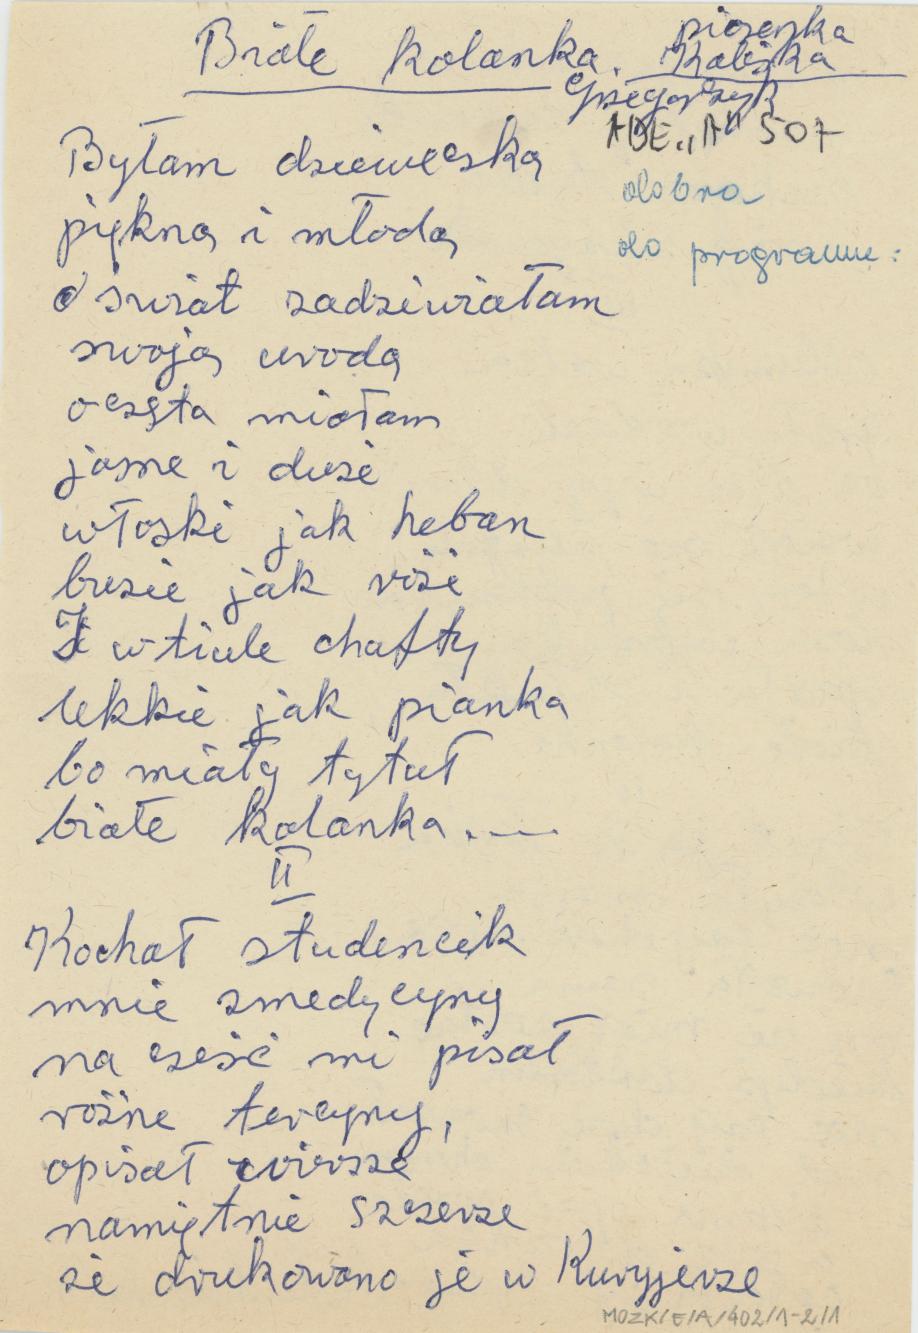 Białe kolanka. piosenka
Kaliska
Grzegorzyk
ADE „A" 507
Byłam dzieweczką
piękną i młodą
dobra
do programu:
świat zadziwiałam
swoją urodą
oczęta miałam
jasne i duże
włoski jak heban
buzie jak róże
I w tiule chafty
lekkie jak pianka
bo miały tytuł
białe kolanka.——
II
Kochał studencik
mnie zmedycyny
na cześć mi pisał
rożne tercyny,
opisał
namiętnie szczerze
że drukowano je w Kuryjerze
MOZK/E/A/402/1-2/1